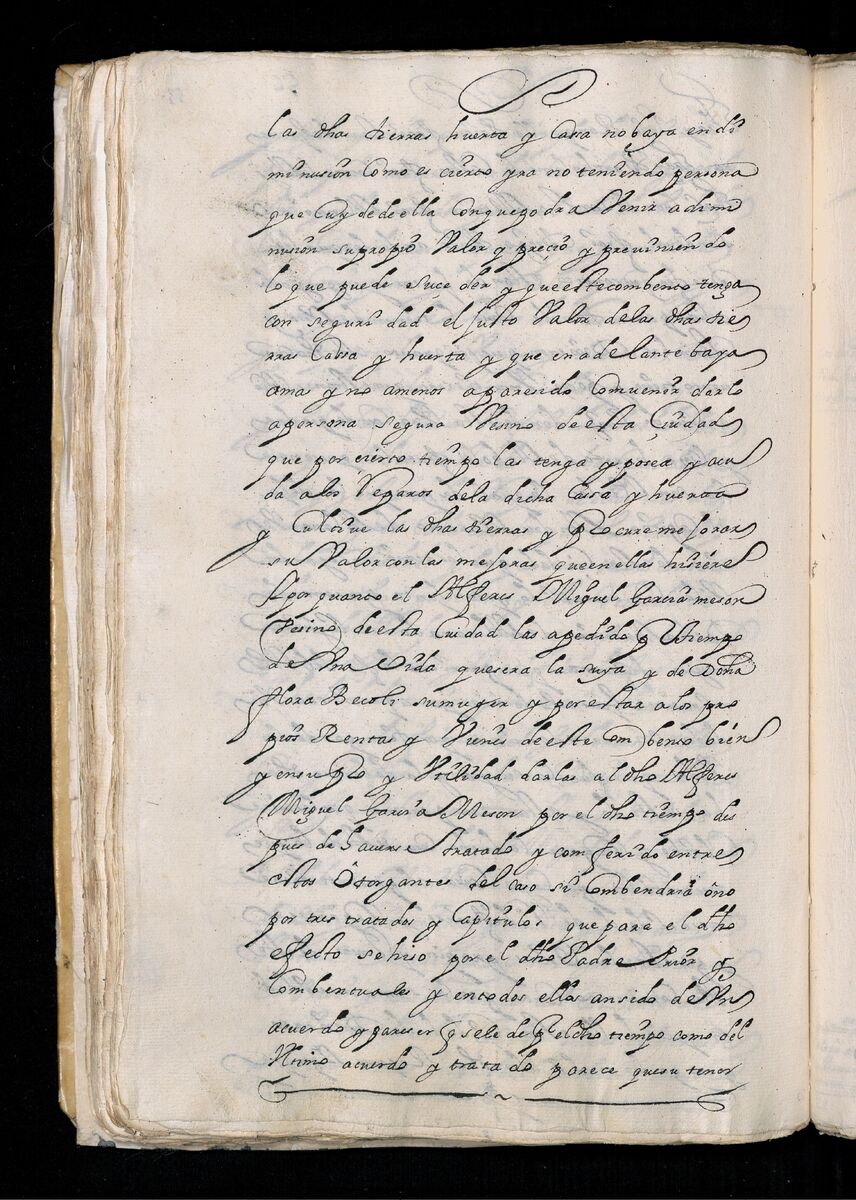 las dhas tierras huerta y Cassa no baya en di
minusion Como es cierto yra no teniendo persona
que Cuydede ella Conque podra Venir a dimi
nusion su propio Valor y preçio y previniendo
lo que puede suçeder y que este combento tenga
con seguridad el justo Valor delas dhas tie
rras Cassa y huerta y que en adelante baya
a mas y no a menos a paresido Comvenir darlo
a persona segura Vesino de esta Çiudad
que por cierto tiempo las tenga y posea y acu
da a los Reparos dela dicha Cassa y huerta
y Cultive las dhas tierras y Procure mejorar
su Valor con las mejoras que en ellas hisiere
y por quanto el Alferes Miguel Garcia meson
Vesino de esta Ciudad las a pedido por tiempo
de Una Vida que sera la suya y de Doña
flora Becoli su muger y por estar a los pro
pios Rentas y Vienes de este combento bien
y en su Pro y Utilidad darlas al dho Alferes
Miguel Garcia Meson por el dho tiempo des
pues de haverse tratado y comferido entre
estos Otorgantes del caso si Combendria o no
por tres tratados y Capitulos que para el dho
efecto se hiso por el dho Padre Prior y
Combentuales y en todos ellos an sido de Un
acuerdo y pareser q se le de Por el dho tiempo como del
Ultimo acuerdo y tratado parece que su tenor